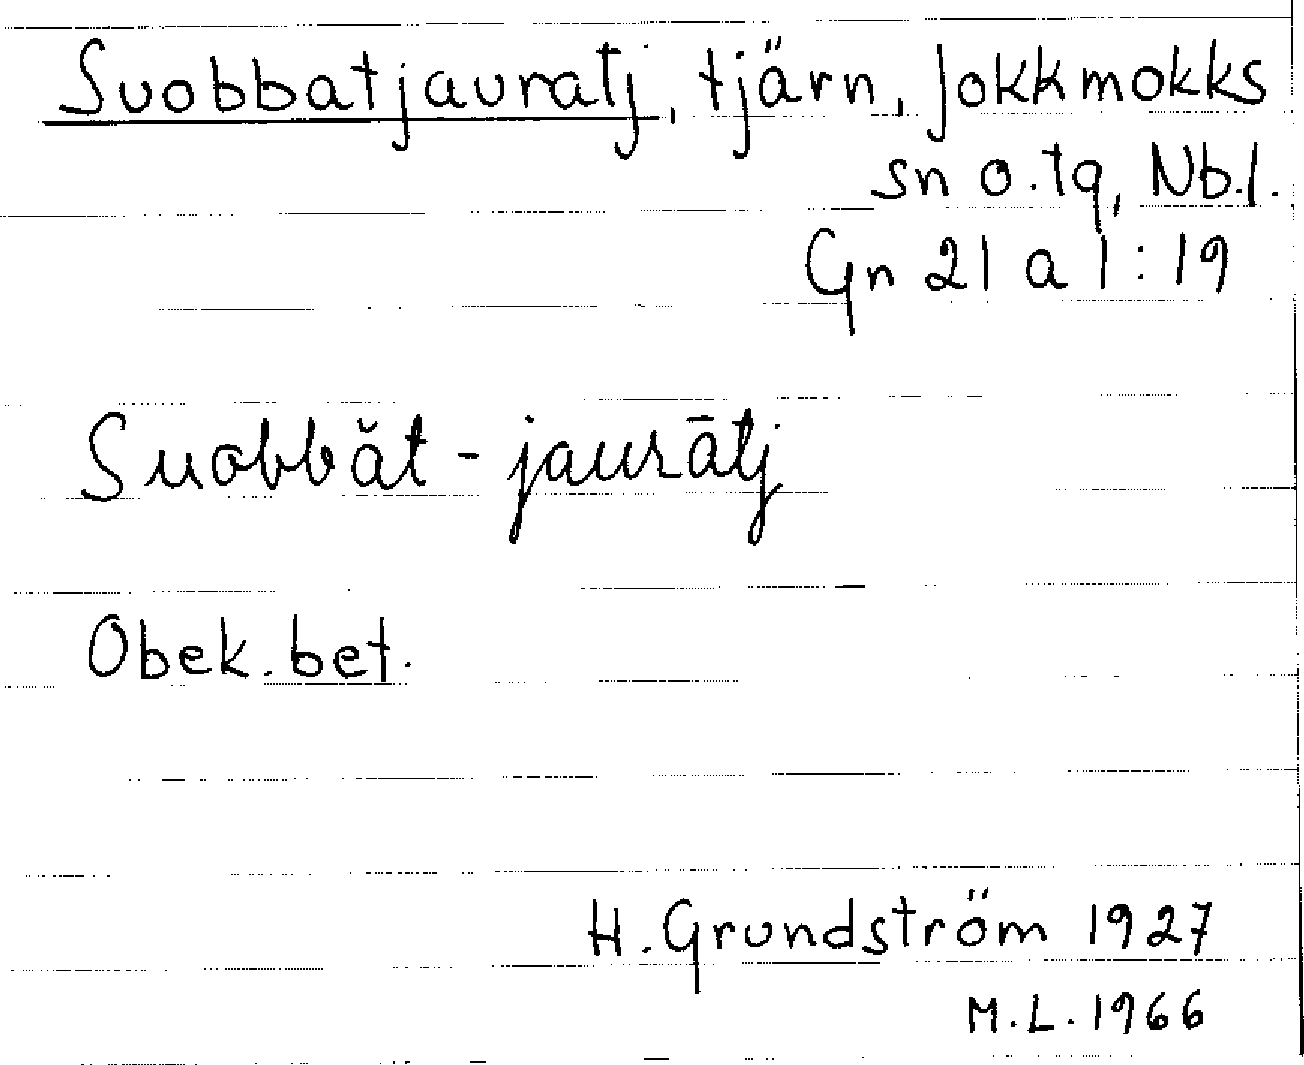 Suobbatjauratj, tjärn, Jokkmokks
sn o. tq, Nb.l.
Gn 21 a 1:19
Suobbăt-jaurātj
Obek. bet.
H. Grundström 1927
M.L. 1966